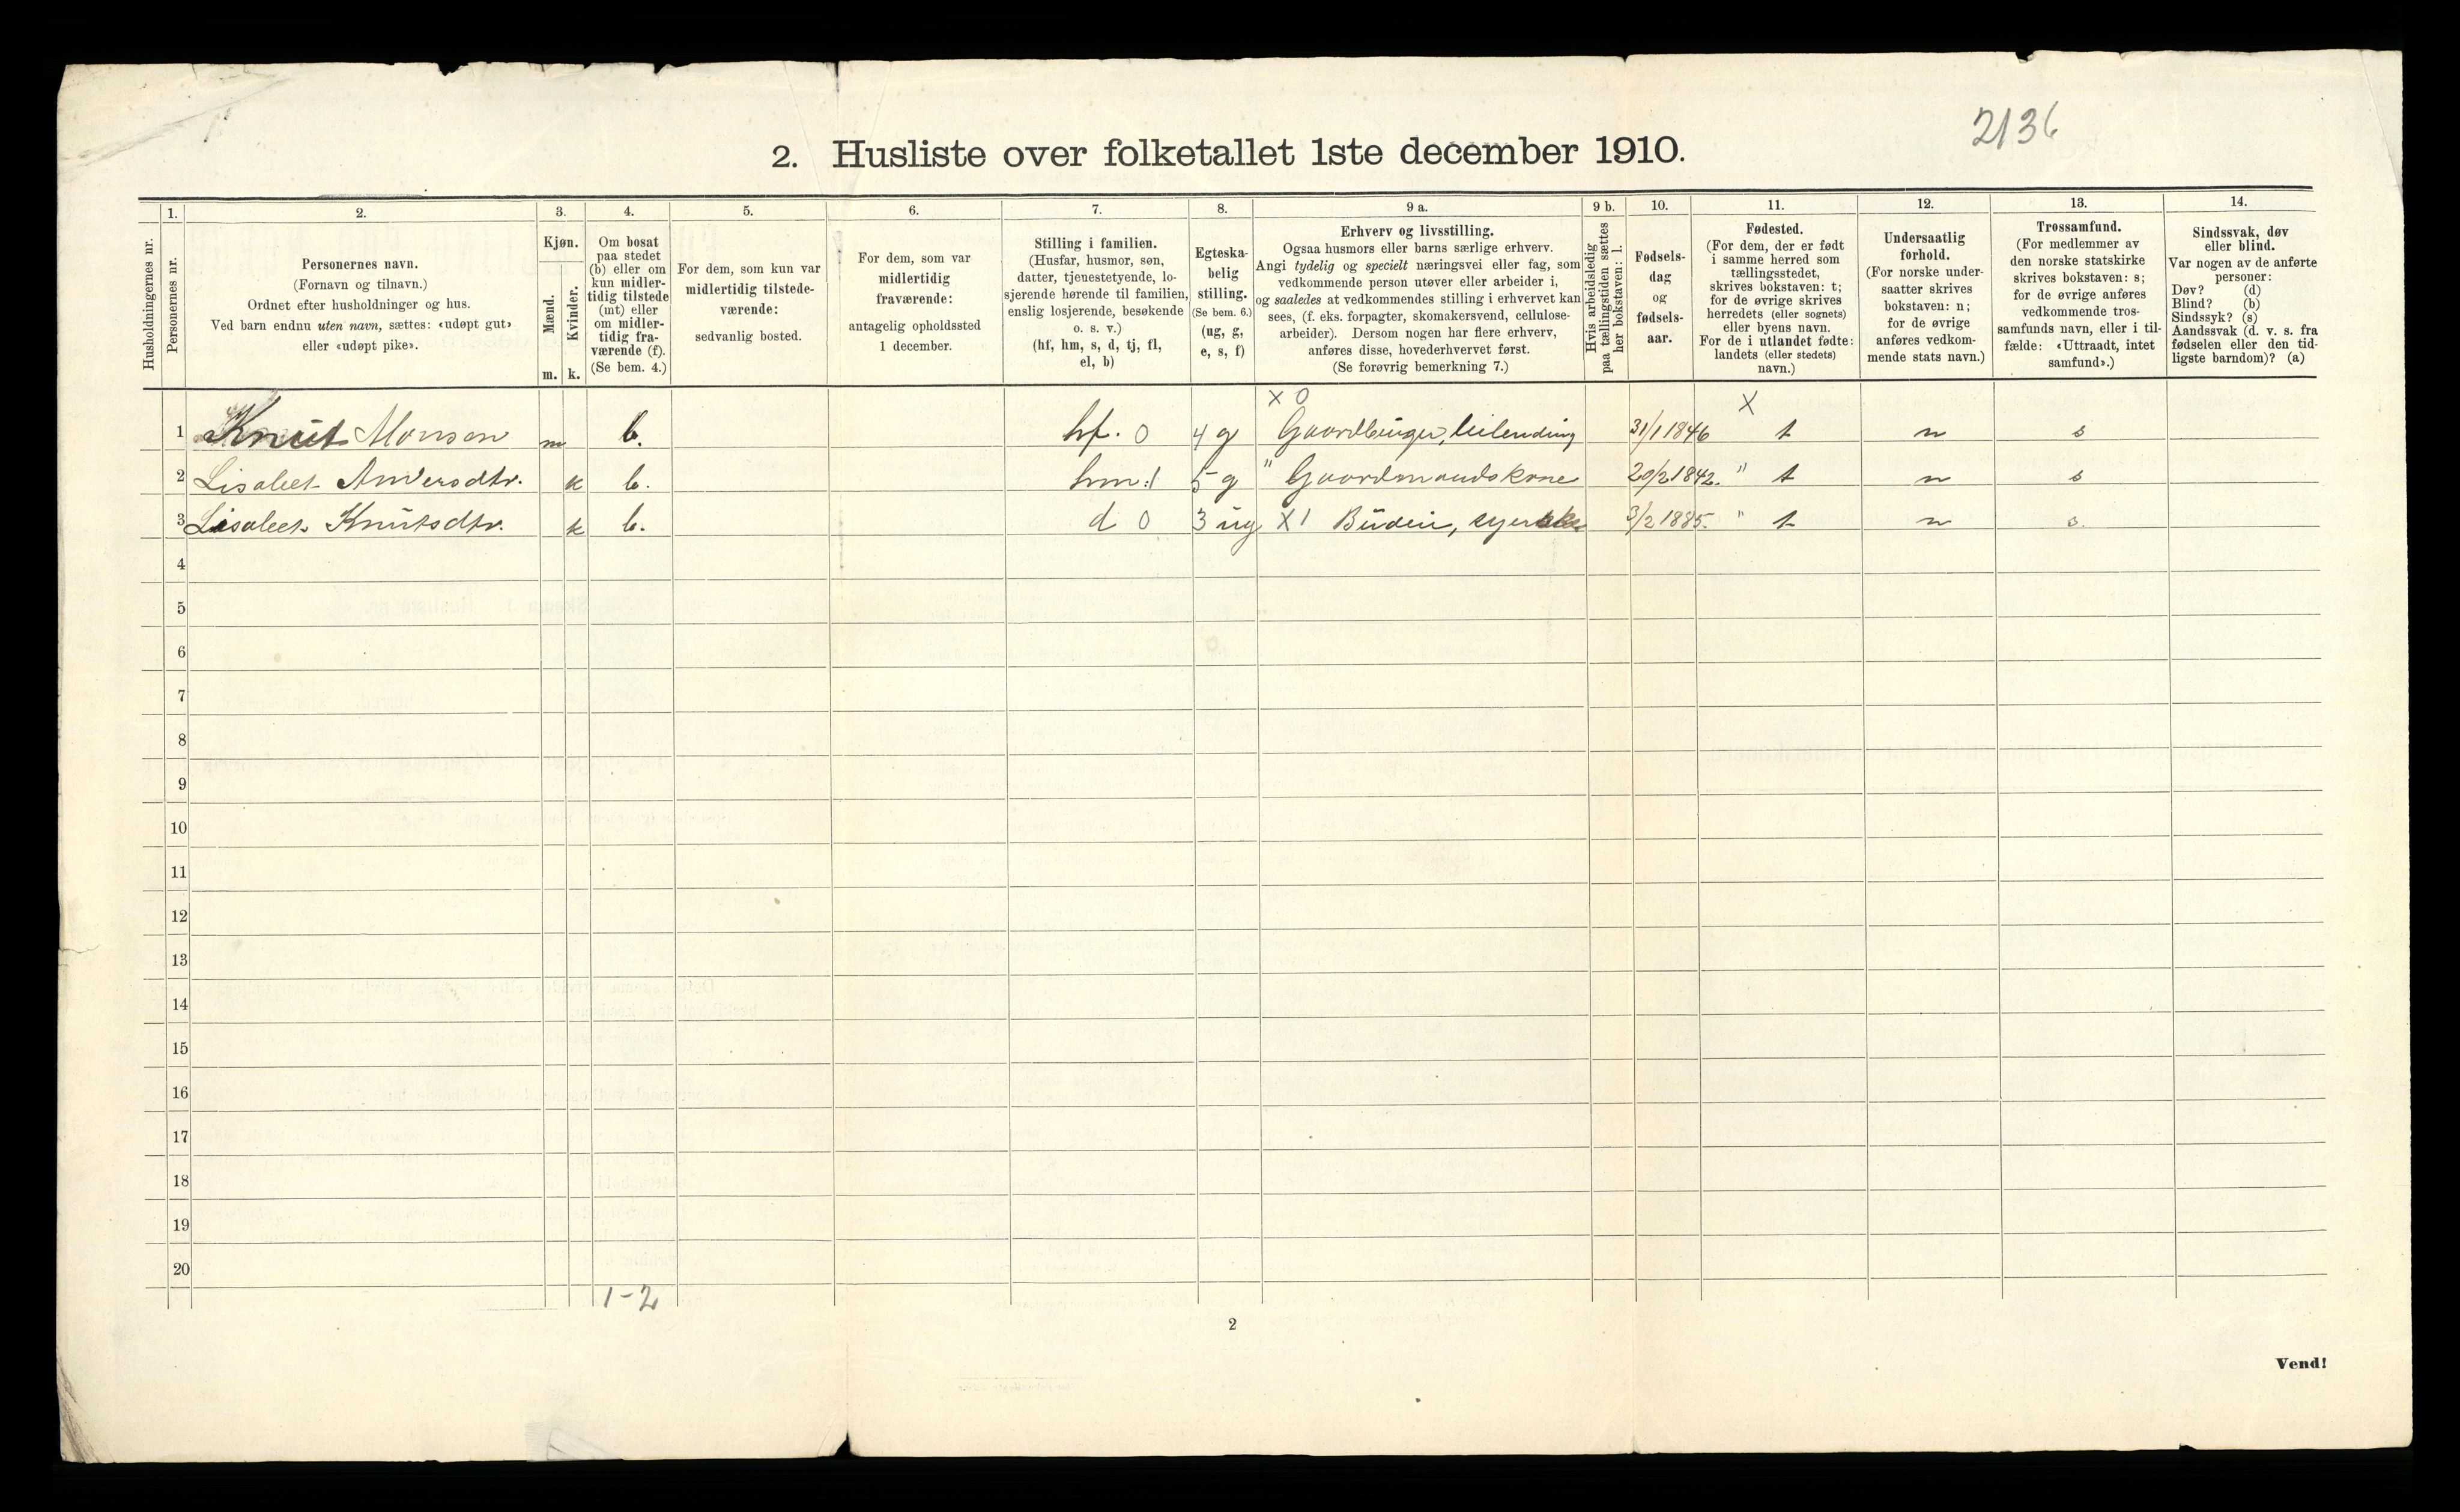 2136
2. Husliste over folketallet 1ste december 1910.
Husholdningernes nr.
1.
Personernes nr.
2.
Personernes navn.
(Fornavn og tilnavn.)
Ordnet efter husholdninger og hus.
Ved barn endnu uten navn, sættes: «udøpt gut»
eller «udøpt pike».
3.
Kjøn.
Mænd.
Kvinder.
m. k.
4.
Om bosat
paa stedet
(b) eller om
kun midler-
tidig tilstede
(mt) eller
om midler-
tidig fra-
værende (f).
(Se bem. 4.)
5.
For dem, som kun var
midlertidig tilstede-
værende:
sedvanlig bosted.
6.
For dem, som var
midlertidig
fraværende:
antagelig opholdssted
1 december.
7.
Stilling i familien.
(Husfar, husmor, søn,
datter, tjenestetyende, lo-
sjerende hørende til familien,
enslig losjerende, besøkende
o. s. v.)
(hf, hm, s, d, tj, fl,
el, b)
8.
Egteska-
belig
stilling.
(Se bem. 6.)
(ug, g,
e, s, f)
9 a.
Erhverv og livsstilling.
Ogsaa husmors eller barns særlige erhverv.
Angi tydelig og specielt næringsvei eller fag, som
vedkommende person utøver eller arbeider i,
og saaledes at vedkommendes stilling i erhvervet kan
sees, (f. eks. forpagter, skomakersvend, cellulose-
arbeider). Dersom nogen har flere erhverv,
anføres disse, hovederhvervet først.
(Se forøvrig bemerkning 7.)
9 b.
Hvis arbeidsledig
paa tællingstiden sættes
her bokstaven: l.
10.
Fødsels-
dag
og
fødsels-
aar.
11.
Fødested.
(For dem, der er født
i samme herred som
tællingsstedet,
skrives bokstaven: t;
for de øvrige skrives
herredets (eller sognets)
eller byens navn.
For de i utlandet fødte:
landets (eller stedets)
navn.)
12.
Undersaatlig
forhold.
(For norske under-
saatter skrives
bokstaven: n;
for de øvrige
anføres vedkom-
mende stats navn.)
13.
Trossamfund.
(For medlemmer av
den norske statskirke
skrives bokstaven: s;
for de øvrige anføres
vedkommende tros-
samfunds navn, eller i til-
fælde: «Uttraadt, intet
samfund».)
14.
Sindssvak, døv
eller blind.
Var nogen av de anførte
personer:
Døv? (d)
Blind? (b)
Sindssyk? (s)
Aandssvak (d. v. s. fra
fødselen eller den tid-
ligste barndom)? (a)
x 0 x
1 Knut Monsen m b. hf. 0 4 g Gaardbruger, leilending 31/1 1846 t n s
2 Lisabet Andersdtr. k b. hm. 1 5 g " Gaardmandskone 20/2 1842. " t n s
3 Lisabet Knutsdtr. k b. d 0 3 ug x 1 Budeie, 3/2 1885. " t n s.
4
5
6
7
8
9
10
11
12
13
14
15
16
17
18
19
20
1-2
2
Vend!